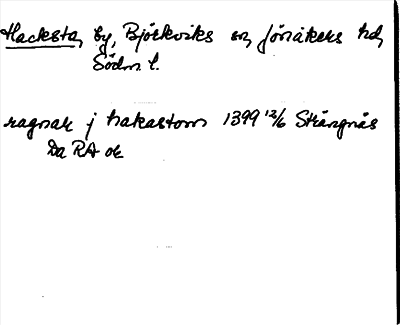 Hacksta, by, Björkviks sn, Jönåkers hd,
Södm. l.
ragnar j hakastom 1399 12/6 Strängnäs
Da RA or